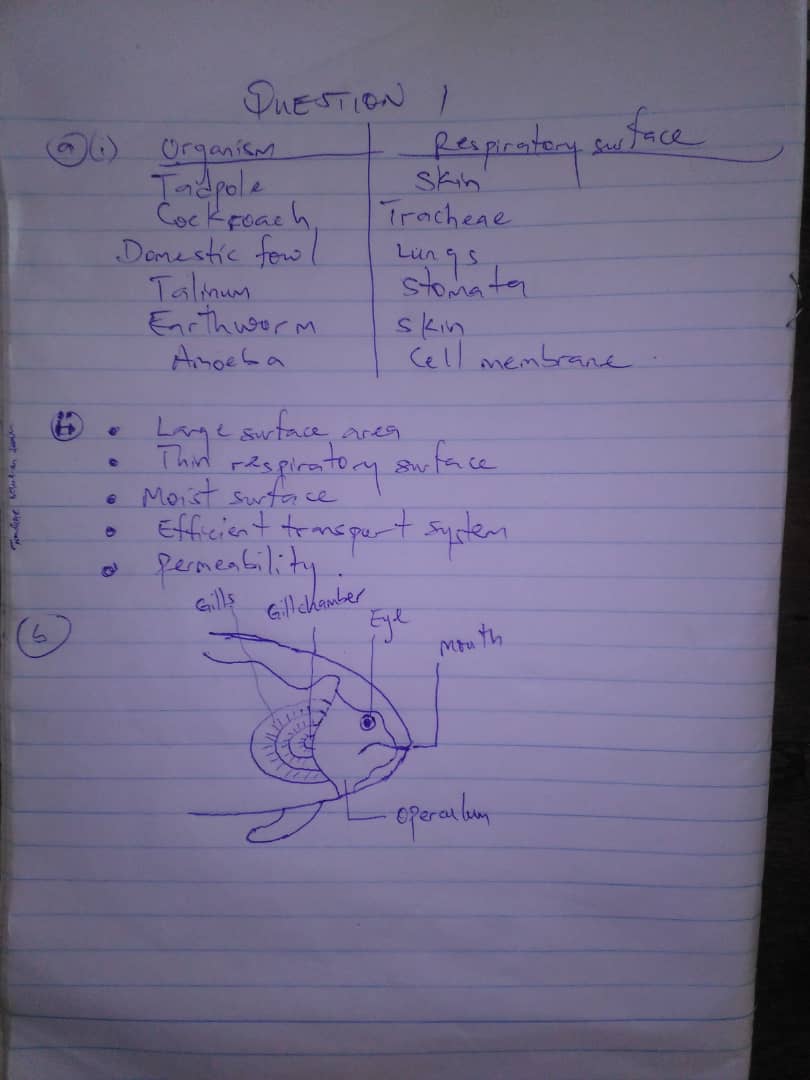 QUESTION 1
(a)(i) Organism Respiratory surface
Tadpole Skin
Cockroach Tracheae
Domestic fowl Lungs
Talinum Stomata
Earthworm Skin
Amoeba Cell membrane.
(ii) • Large surface area
• Thin respiratory surface
• Moist surface
• Efficient transport system
• Permeability.
(b)
Gills Gill chamber Eye Mouth
Operculum